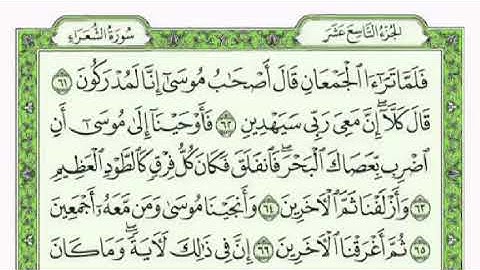 الجزء التاسع عشر
سورة الشعراء
فَلَمَّا تَرَٰٓءَا ٱلۡجَمۡعَانِ قَالَ أَصۡحَٰبُ مُوسَىٰٓ إِنَّا لَمُدۡرَكُونَ ٦١
قَالَ كَلَّآۖ إِنَّ مَعِيَ رَبِّي سَيَهۡدِينِ ٦٢ فَأَوۡحَيۡنَآ إِلَىٰ مُوسَىٰٓ أَنِ
ٱضۡرِب بِّعَصَاكَ ٱلۡبَحۡرَۖ فَٱنفَلَقَ فَكَانَ كُلُّ فِرۡقٖ كَٱلطَّوۡدِ ٱلۡعَظِيمِ
٦٣ وَأَزۡلَفۡنَا ثَمَّ ٱلۡأٓخَرِينَ ٦٤ وَأَنجَيۡنَا مُوسَىٰ وَمَن مَّعَهُۥٓ أَجۡمَعِينَ
٦٥ ثُمَّ أَغۡرَقۡنَا ٱلۡأٓخَرِينَ ٦٦ إِنَّ فِي ذَٰلِكَ لَأٓيَةٗۖ وَمَا كَانَ